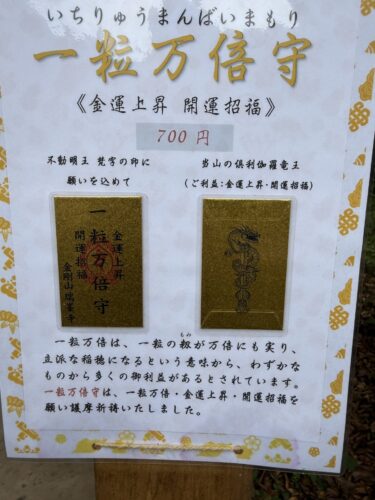 いちりゅうまんばいまもり
一粒万倍守
《金運上昇 開運招福》
700円
不動明王 梵字の印に
願いを込めて
当山の倶利伽羅竜王
(ご利益:金運上昇・開運招福)
金運上昇
一粒万倍守
開運招福
金剛山 瑞峯寺
もみ
一粒万倍は、一粒の籾が万倍にも実り、
立派な稲穂になるという意味から、わずかな
ものから多くの御利益があるとされています。
一粒万倍守は、一粒万倍・金運上昇・開運招福を
願い護摩祈祷いたしました。